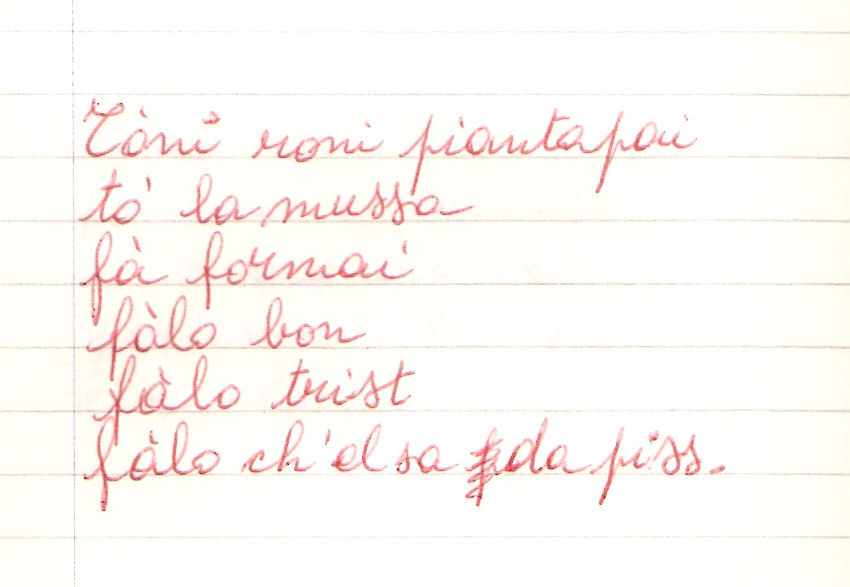 Tòni roni piantapai
tò la mussa
fà formai
fàlo bon
fàlo trist
fàlo ch'el sa da piss.